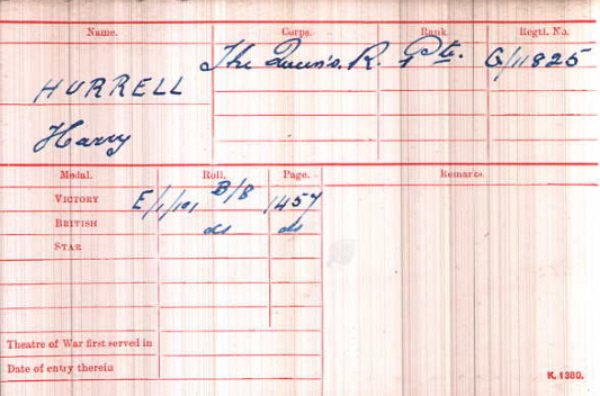 Name. Corps. Rank. Regtl. No.
HURRELL The Queen's. R. Pte. G/11825
Harry
Medal. Roll. Page. Remarks.
VICTORY E/1/101 B/8 1457
BRITISH do do
STAR
Theatre of War first served in
Date of entry therein
K. 1380.